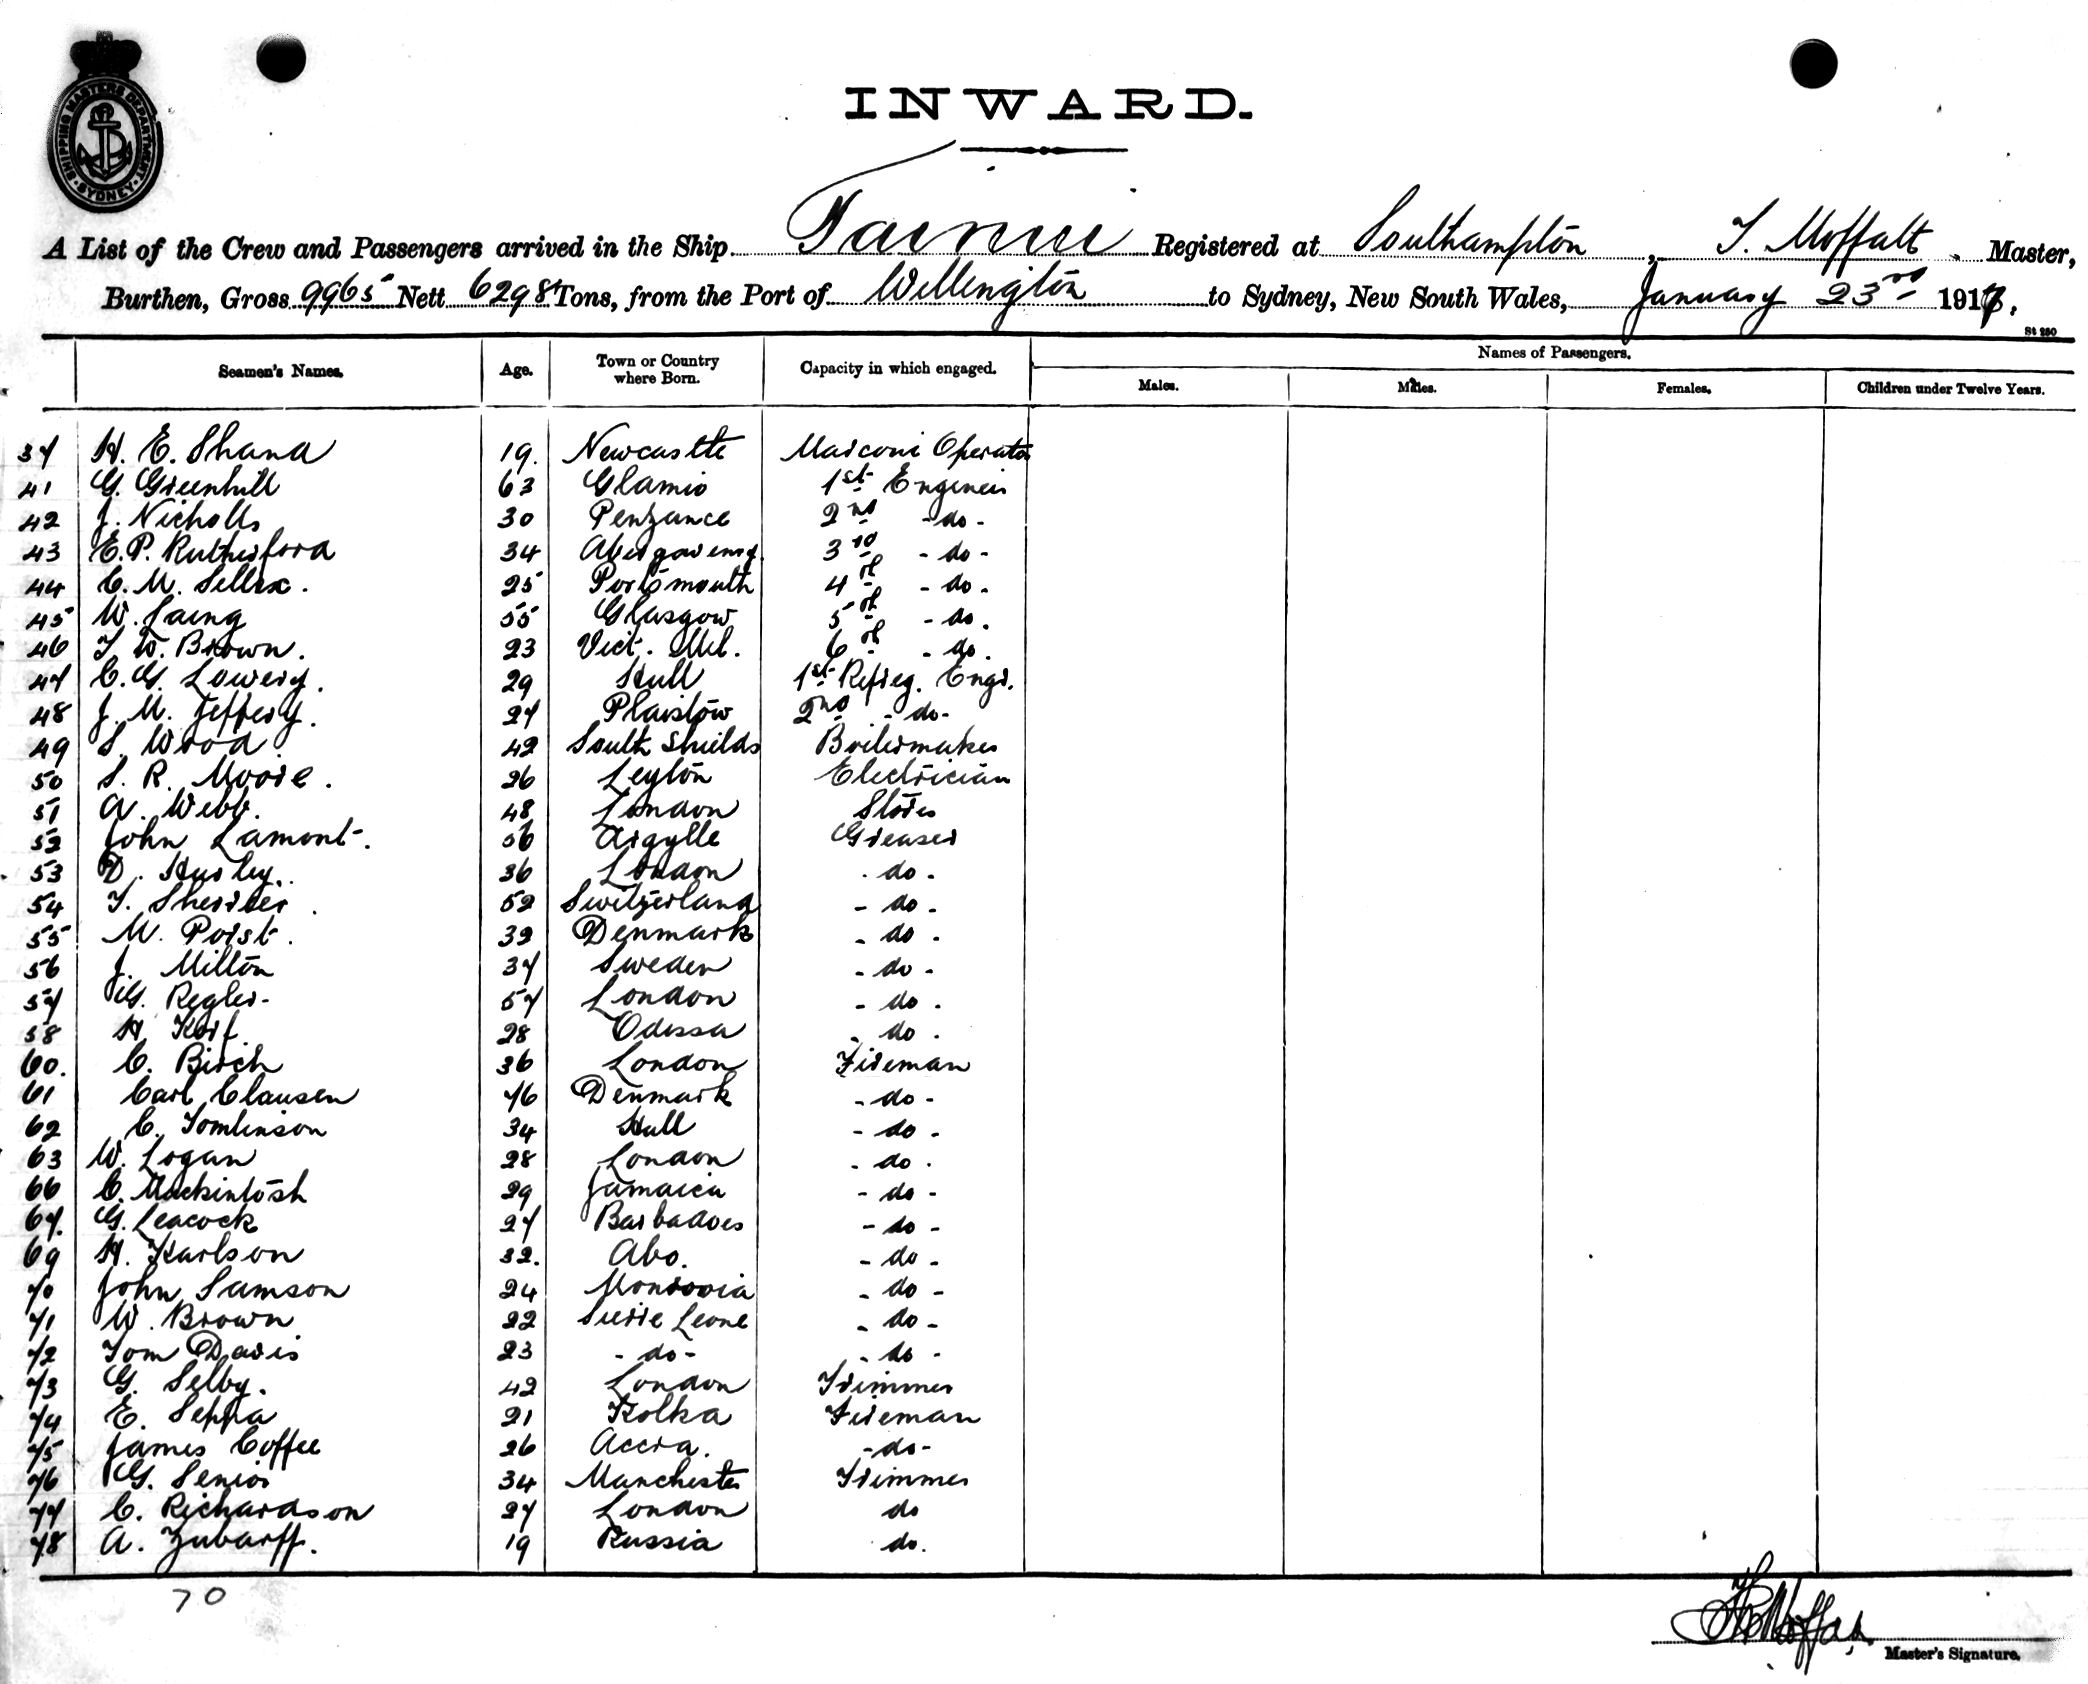 SHIPPING MASTERS DEPARTMENT
SYDNEY
INWARD.
A List of the Crew and Passengers arrived in the Ship Tainui Registered at Southampton, T. Moffatt. Master,
Burthen, Gross 9965 Nett 6298 Tons, from the Port of Wellington to Sydney, New South Wales, January 23rd 1917.
St 250
Seamen's Names. Age. Town or Country where Born. Capacity in which engaged. Names of Passengers.
Males. Males. Females. Children under Twelve Years.
37 H. E. Shand 19. Newcastle Marconi Operator
41 G. Greenhill 63 Glamis 1st Engineer
42 J. Nicholls 30 Penzance 2nd - do -
43 E. P. Rutherford 34 Abergavenny 3rd - do -
44 C. M. Sellex. 25 Portsmouth 4th - do -
45 W. Laing 55 Glasgow 5th - do.
46 T. W. Brown. 23 Vict. Mel. 6th - do.
47 C. G. Lowery. 29 Hull 1st Refrig. Engr.
48 J. M. Jeffery. 27 Plaistow 2nd - do -
49 S. Wood 42 South Shields Boilermaker
50 S. R. Moore. 26 Leyton Electrician
51 A. Webb. 48 London Stores
52 John Lamont. 56 Argylle Greaser
53 D. Hurley. 36 London - do -
54 52 Switzerland - do -
55 M. Porst. 32 Denmark - do -
56 J. Milton 37 Sweden - do -
57 G. Regler. 57 London - do -
58 H. 28 Odessa - do -
60. C. Birch 36 London Fireman
61 Carl Clausen 46 Denmark - do -
62 C. Tomlinson 34 Hull - do -
63 W. Logan 28 London - do -
66 C. Mackintosh 29 Jamaica - do -
67. G. Leacock 27 Barbadoes - do -
69 H. Karlson 32. Abo. - do -
70 John Samson 24 Monrovia - do -
71 W. Brown 22 Sierre Leone - do -
72 Tom Davis 23 - do - - do -
73 G. Selby. 42 London Trimmer
74 E. Seppa 21 Kolka Fireman
75 James Coffee 26 Accra. - do -
76 G. Senior 34 Manchester Trimmer
77 C. Richardson 27 London do
78 A. Zubarff. 19 Russia do.
70
Moffatt
Master's Signature.